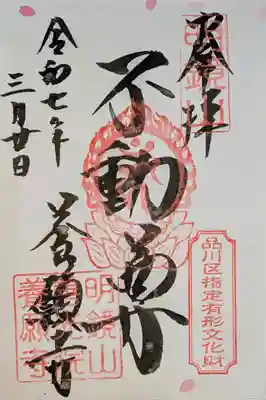 奉拝
明鏡
不動尊
令和七年
三月廿日
養願寺
品川区指定有形文化財
明鏡山
養願寺